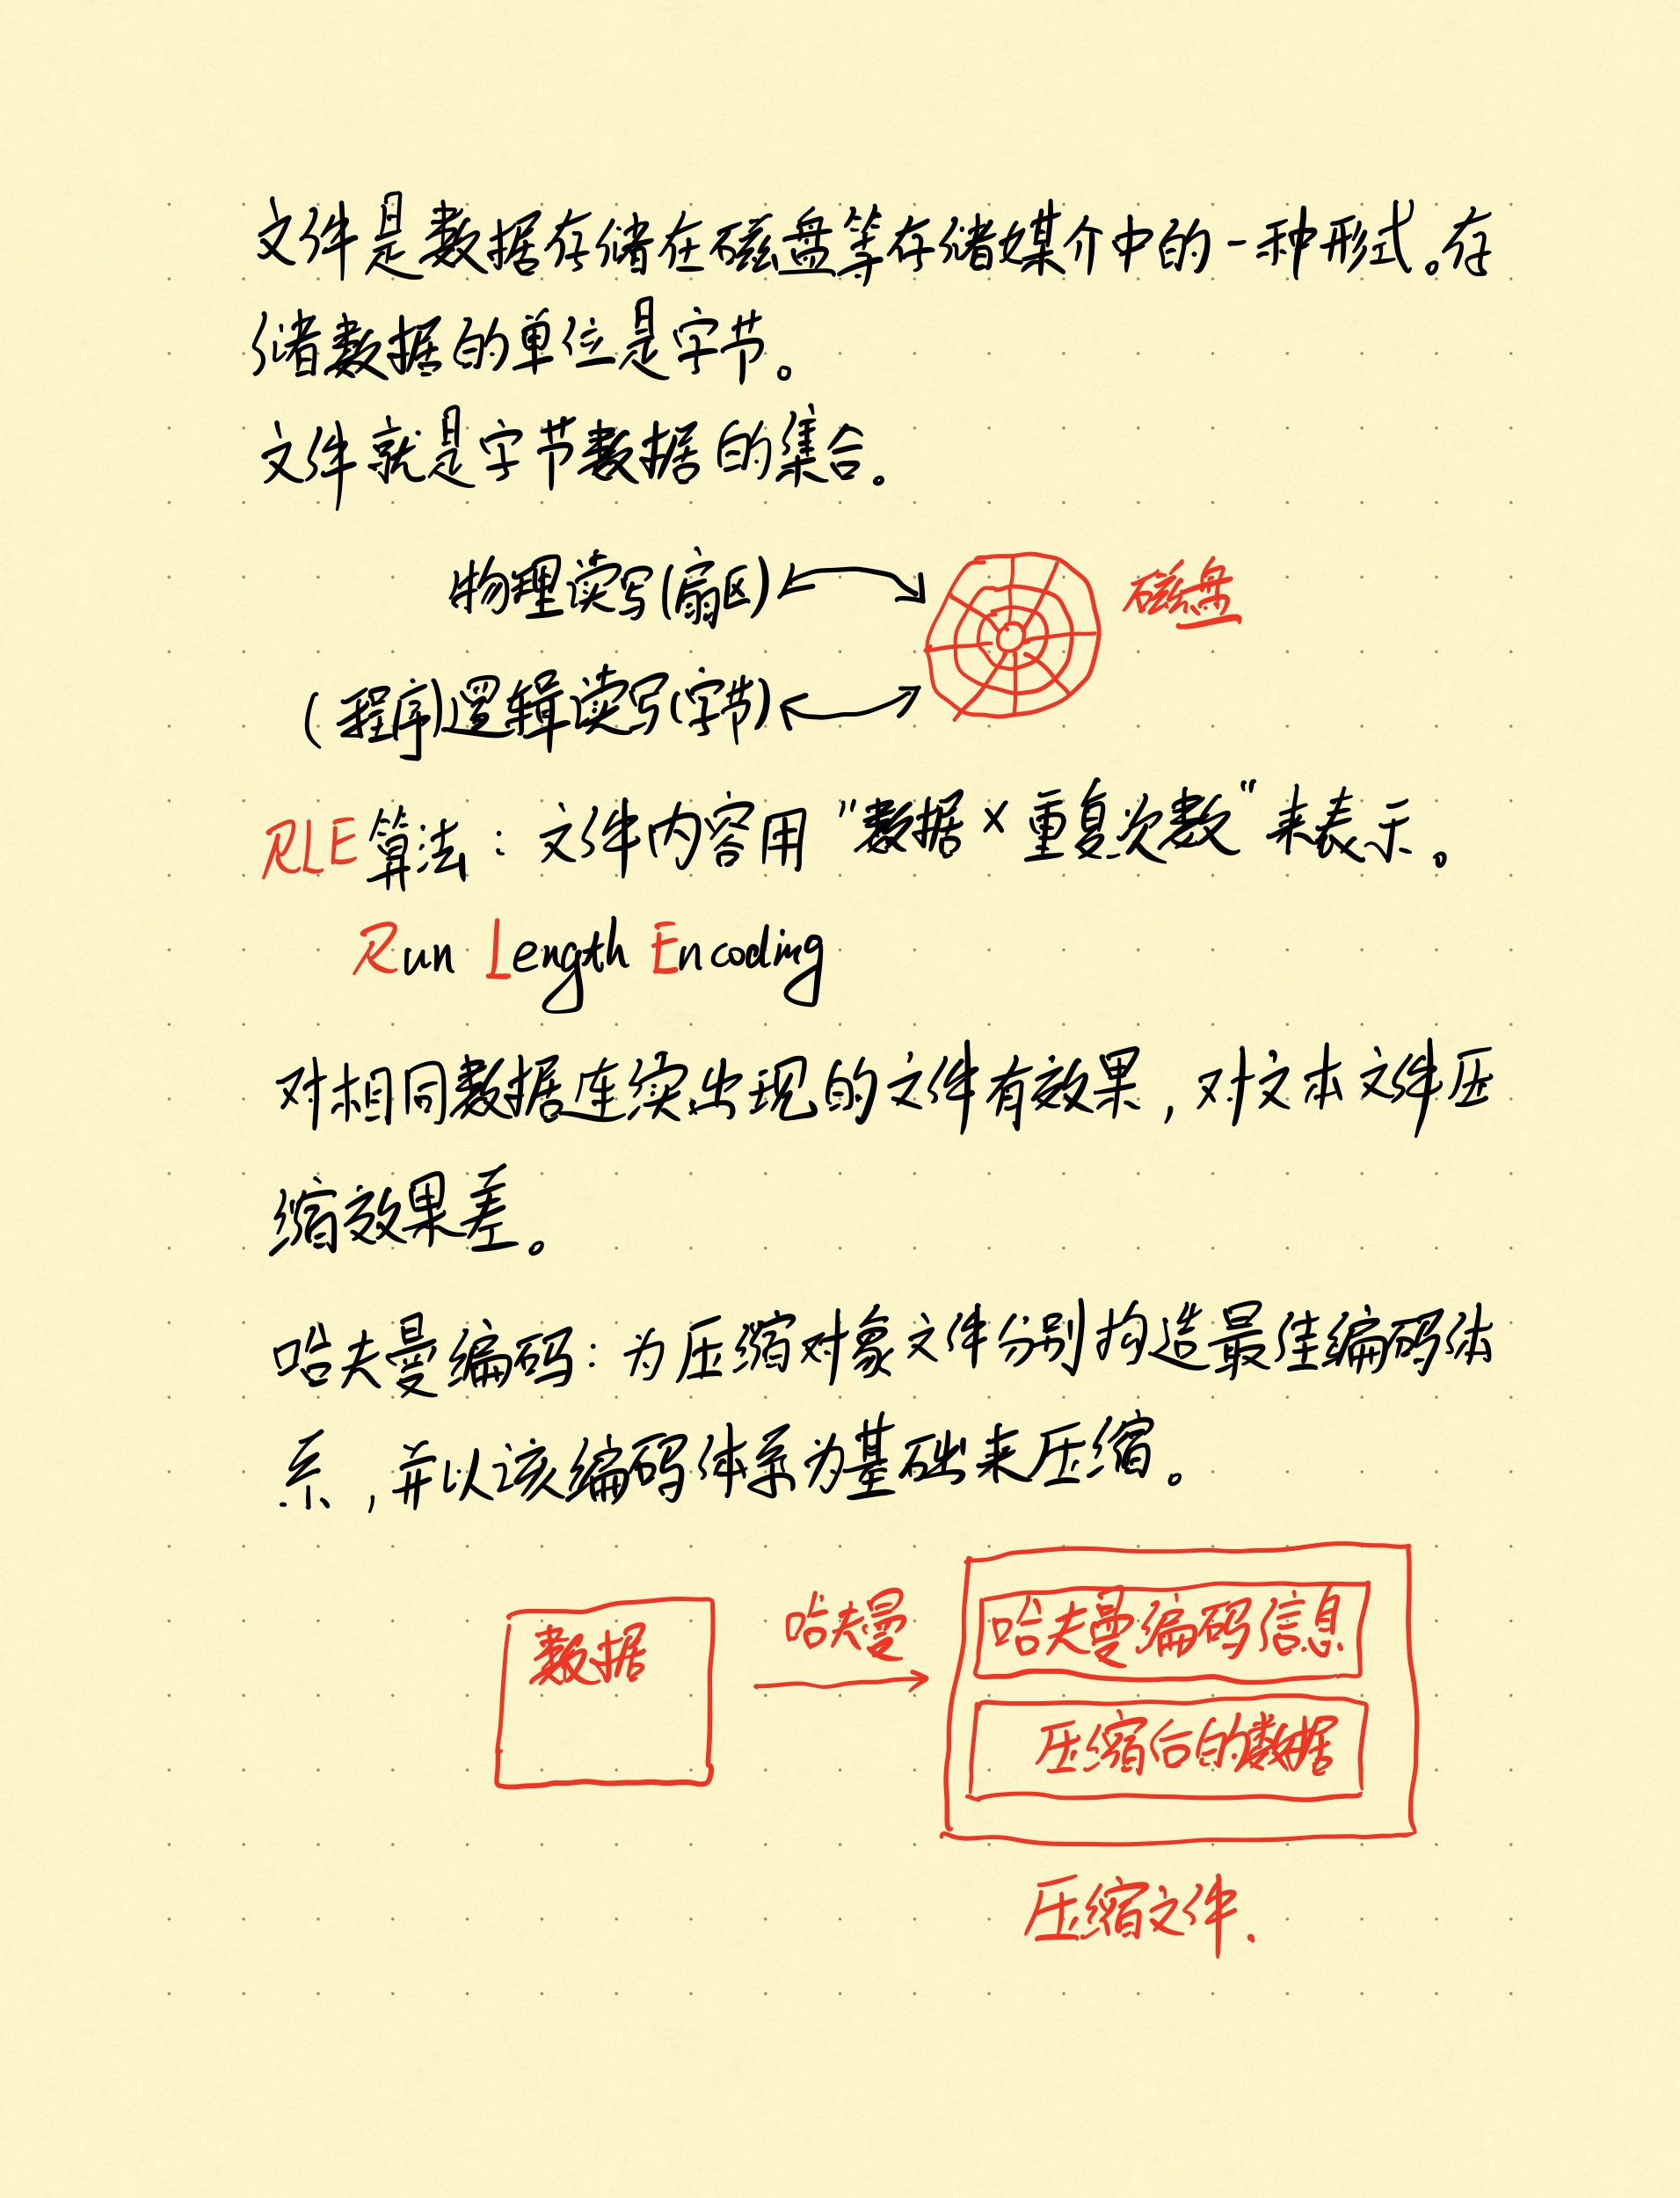 文件是数据存储在磁盘等存储媒介中的一种形式。存
储数据的单位是字节。
文件就是字节数据的集合。
物理读写(扇区)
磁盘
(程序)逻辑读写(字节)
RLE算法：文件内容用"数据×重复次数"来表示。
Run Length Encoding
对相同数据连续出现的文件有效果,对文本文件压
缩效果差。
哈夫曼编码:为压缩对象文件分别构造最佳编码体
系,并以该编码体系为基础来压缩。
数据
哈夫曼
哈夫曼编码信息
压缩后的数据
压缩文件.